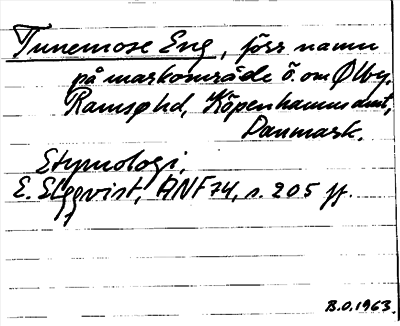 Tunemose Eng, förr namn
på markområde ö. om Ølby,
Ramsø hd, Köpenhamns amt,
Danmark.
Etymologi.
E. Elgqvist, ANF 74, s. 205 ff.
B.O. 1963.